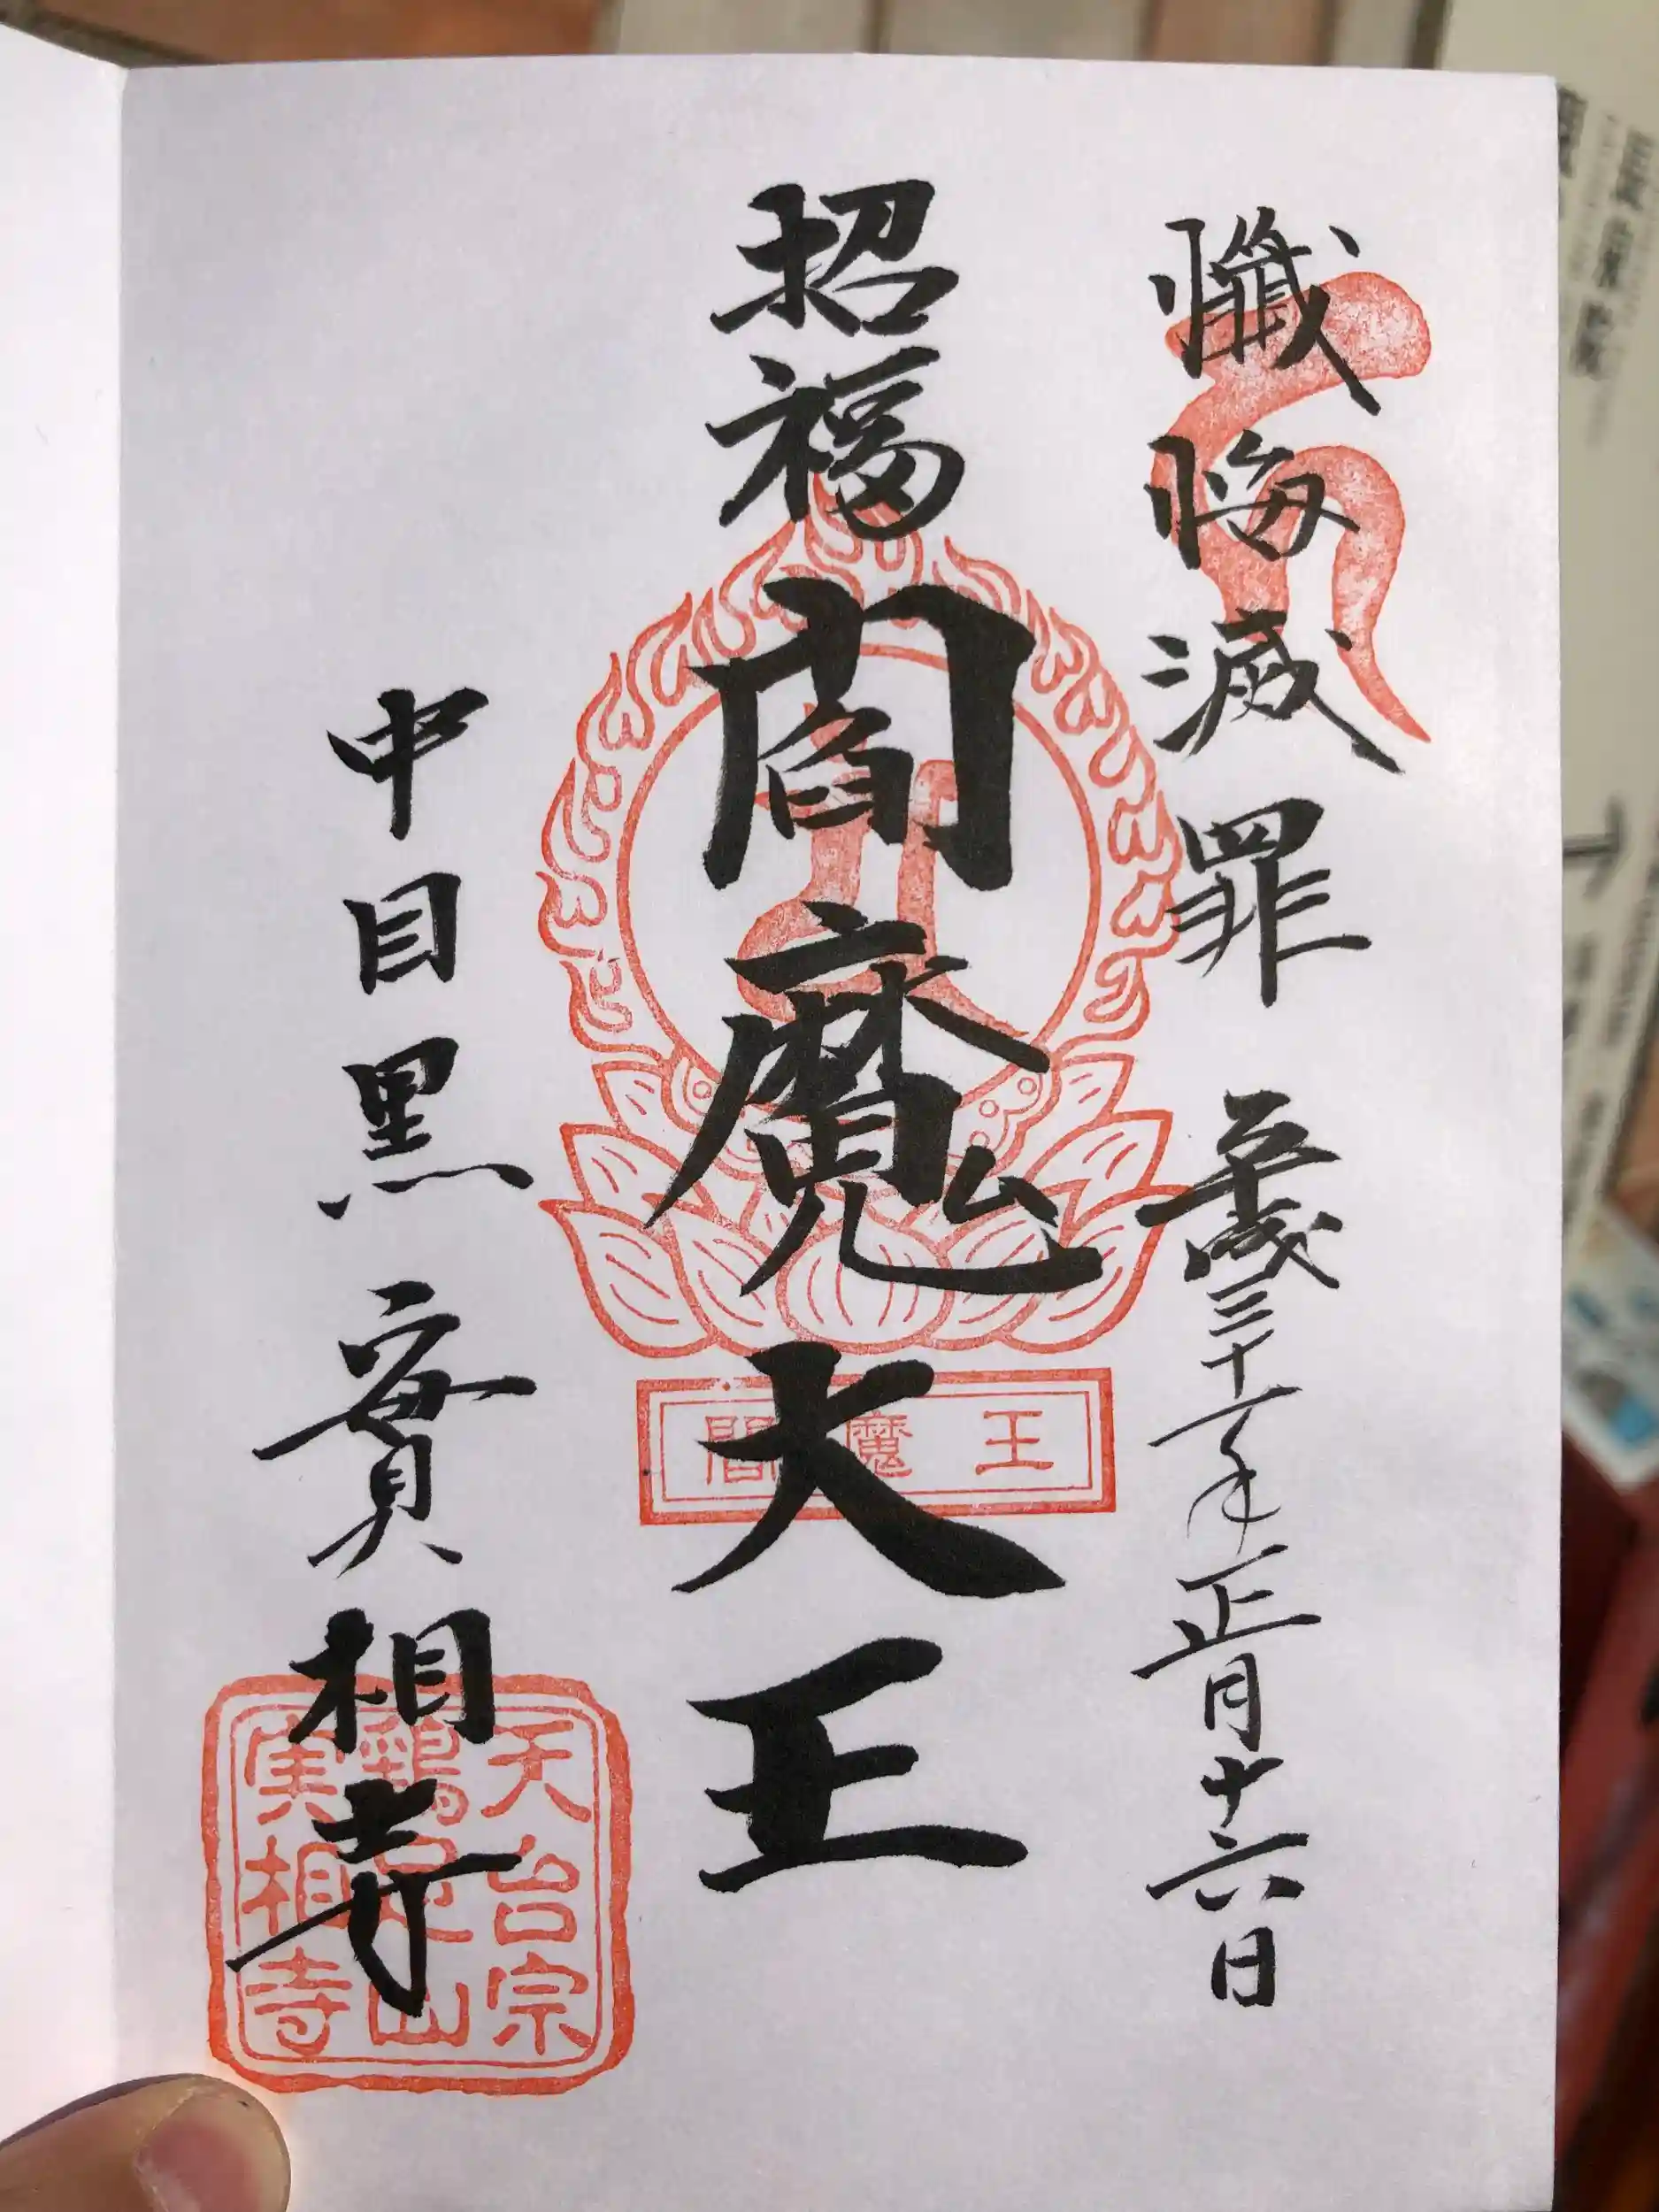 懺悔滅罪 平成三十一年正月十六日
招福閻魔大王
閻魔王
中目黒 實相寺
天台宗
鶏足山
実相寺